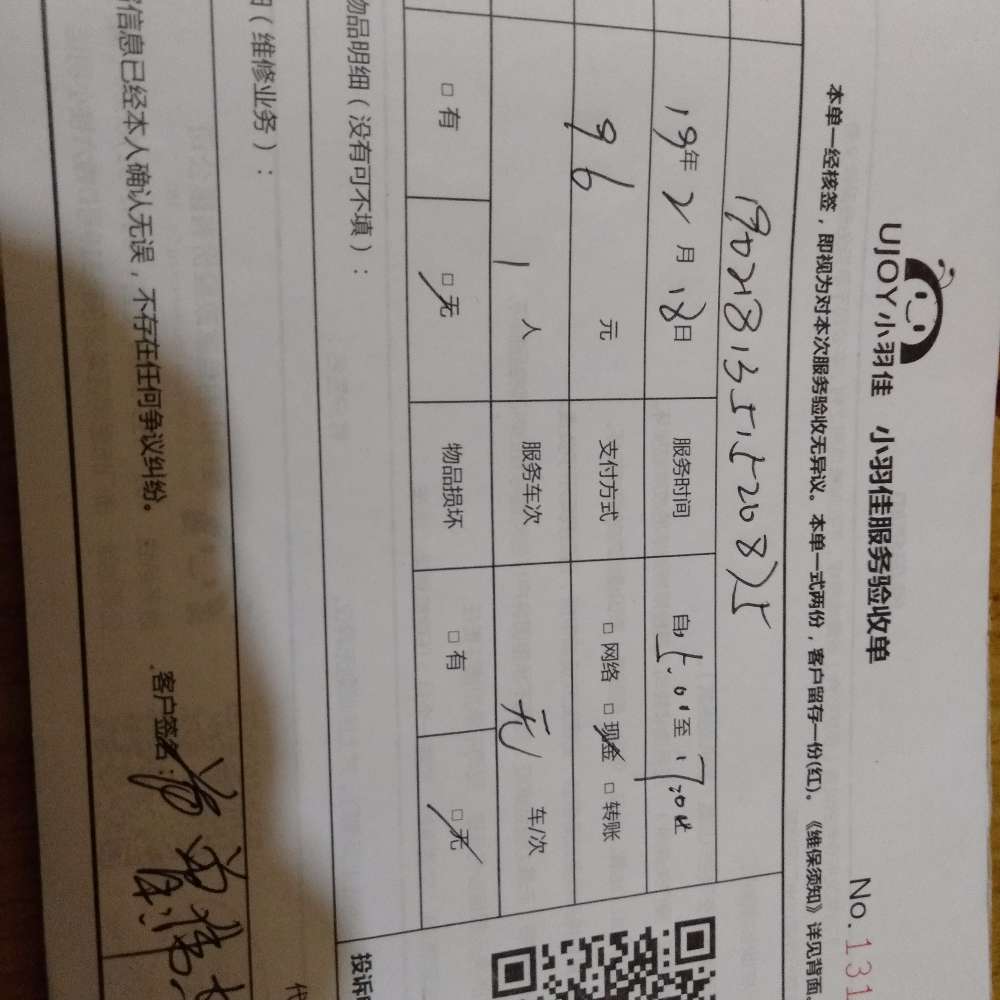 UJOY小羽佳 小羽佳服务验收单
No.131
本单一经核签，即视为对本次服务验收无异议。本单一式两份，客户留存一份(红)。《维保须知》详见背面。
19年2月18日 服务时间 自 至
96元 支付方式 □网络 □现金 □转账
1人 服务车次 无 车/次
□有 □无 物品损坏 □有 □无
物品明细（没有可不填）：
投诉
（维修业务）：
代
信息已经本人确认无误，不存在任何争议纠纷。
客户签名：